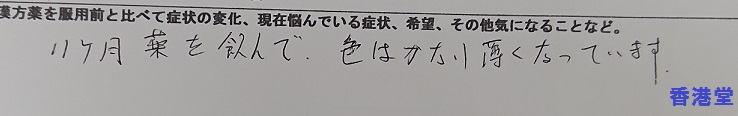 漢方薬を服用前と比べて症状の変化、現在悩んでいる症状、希望、その他気になることなど。
11ケ月 薬を飲んで、色はかなり薄くなっています。
香港堂